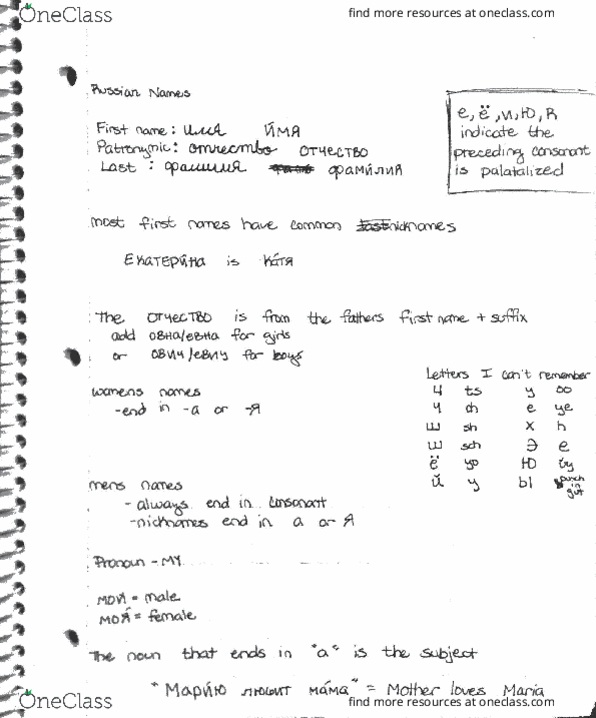 OneClass
find more resources at oneclass.com
Russian Names
First name: имя ИМЯ
Patronymic: отчество ОТЧЕСТВО
Last : фамилия ФАМИЛИЯ
e, ё, и, ю, я
indicate the
preceding consonant
is palatalized
most first names have common nicknames
ЕКАТЕРИ́НА is КА́ТЯ
The ОТЧЕСТВО is from the fathers first name + suffix
add ОВНА/ЕВНА for girls
or ОВИЧ/ЕВИЧ for boys
Letters I can't remember
Ц ts у oo
Ч ch е ye
Ш sh х h
Щ sch Э e
ё yo Ю
й y Ы punch in gut
womens names
-end in -a or -Я
mens names
- always end in consonant
-nicknames end in a or Я
Pronoun - MY
МОЙ = male
МОЯ́ = female
The noun that ends in "a" is the subject
"Мари́ю любит ма́ма" = Mother loves Maria
OneClass
find more resources at oneclass.com